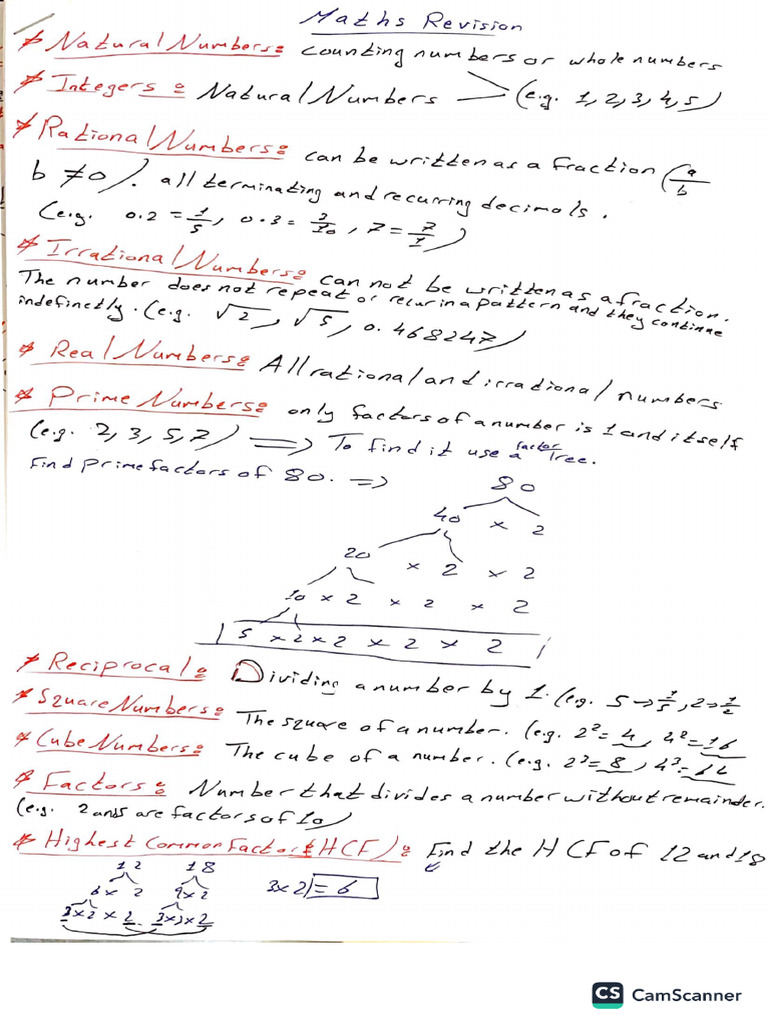 Maths Revision
* Natural Numbers: counting numbers or whole numbers
* Integers: Natural Numbers > (e.g. 1, 2, 3, 4, 5)
* Rational Numbers: can be written as a fraction (a/b
b ≠ 0). all terminating and recurring decimals.
(e.g. 0.2 = 1/5, 0.3 = 3/10, 7 = 7/1)
* Irrational Numbers: can not be written as a fraction.
The number does not repeat or recur in a pattern and they continue
indefinetly. (e.g. √2, √5, 0.468247)
* Real Numbers: All rational and irrational numbers
* Prime Numbers: only factors of a number is 1 and itself
(e.g. 2, 3, 5, 7) => To find it use a factor Tree.
Find Prime factors of 80. =>
80
40 × 2
20 × 2 × 2
10 × 2 × 2 × 2
5 × 2 × 2 × 2 × 2
* Reciprocal: Dividing a number by 1. (e.g. 5 → 1/5, 2 → 1/2
* Square Numbers: The square of a number. (e.g. 2² = 4, 4² = 16
* Cube Numbers: The cube of a number. (e.g. 2³ = 8, 4³ = 64
* Factors: Number that divides a number without remainder.
(e.g. 2 and 5 are factors of 10)
* Highest Common Factor (HCF): Find the HCF of 12 and 18
12 18
6 × 2 9 × 2 3 × 2 = 6
3 × 2 × 2 3 × 3 × 2
CS CamScanner